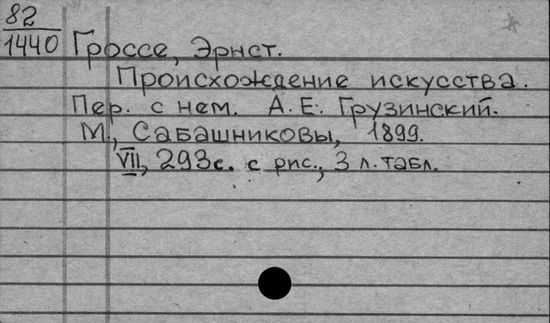 82
1440
Гроссе, Эрнст.
Происхождение искусства.
Пер. с нем. А.Е. Грузинский.
М., Сабашниковы, 1899.
VII, 293с. с рис., 3 л. табл.